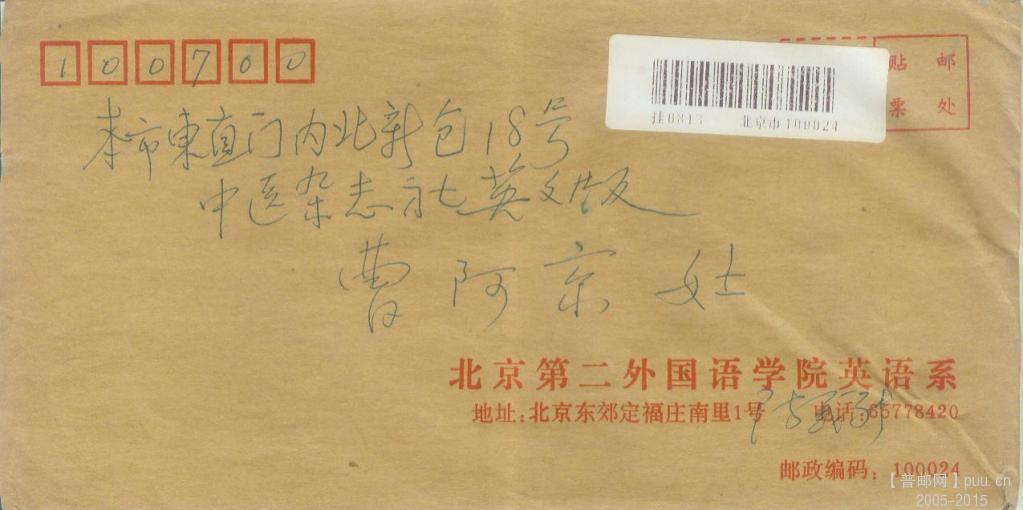 100700
贴 邮
票 处
挂0813 北京市100024
本市東直门内北新仓18号
中医杂志社英文版
曹阿京 女士
北京第二外国语学院英语系
地址:北京东郊定福庄南里1号 电话:65778420
邮政编码:100024
【普邮网】puu.cn
2005-2015